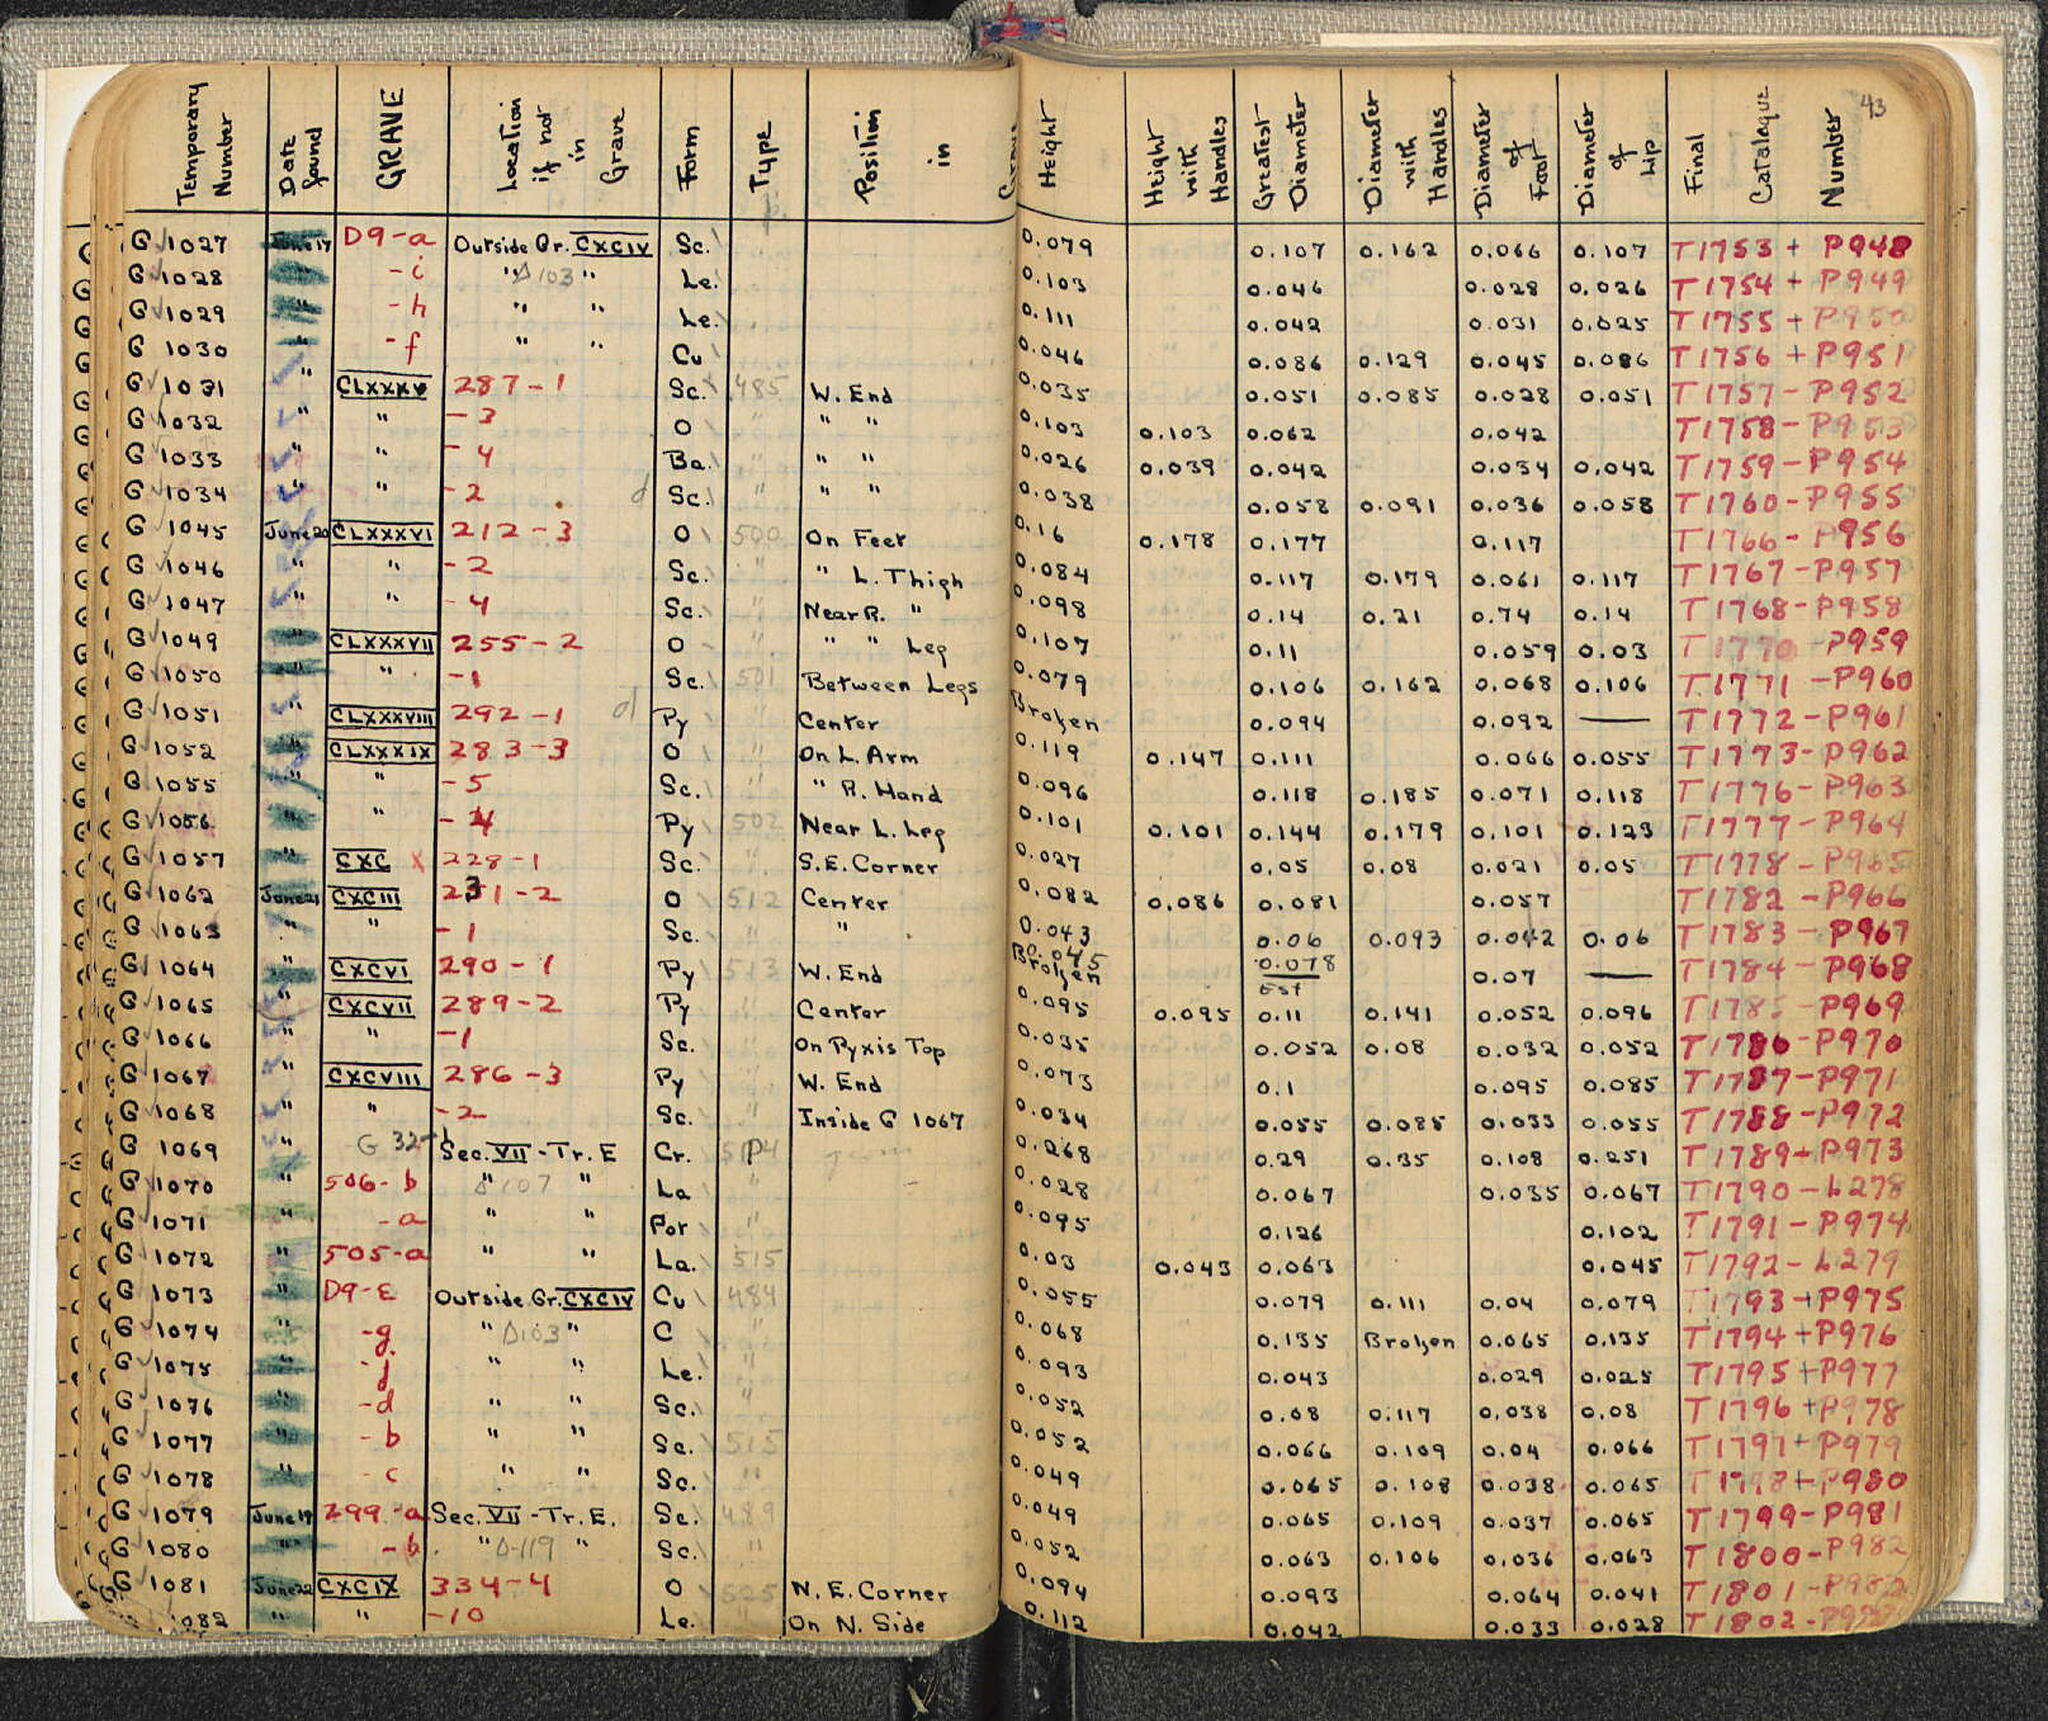 43
Temporary Number | Date found | GRAVE | Location if not in Grave | Form | Type | Position in | Height | Height with Handles | Greatest Diameter | Diameter with Handles | Diameter of Foot | Diameter of Lip | Final Catalogue Number
G 1027 June 17 D9-a Outside Gr. CXCIV Sc. 0.079 0.107 0.162 0.066 0.107 T1753 + P948
G 1028 " -i " Δ103 " Le. 0.103 0.046 0.028 0.026 T1754 + P949
G 1029 " -h " " Le. 0.111 0.042 0.031 0.025 T1755 + P950
G 1030 " -f " " Cu 0.046 0.086 0.129 0.045 0.086 T1756 + P951
G 1031 " CLXXXV 287-1 Sc. 485 W. End 0.035 0.051 0.085 0.028 0.051 T1757-P952
G 1032 " " -3 O " " 0.103 0.103 0.062 0.042 T1758-P953
G 1033 " " -4 Ba. " " " 0.026 0.039 0.042 0.034 0.042 T1759-P954
G 1034 " " -2 d Sc. " " " 0.038 0.058 0.091 0.036 0.058 T1760-P955
G 1045 June 20 CLXXXVI 212-3 O 500 On Feet 0.16 0.178 0.177 0.117 T1766-P956
G 1046 " " -2 Sc. " " L. Thigh 0.084 0.117 0.179 0.061 0.117 T1767-P957
G 1047 " " -4 Sc. " Near R. " 0.098 0.14 0.21 0.74 0.14 T1768-P958
G 1049 " CLXXXVII 255-2 O " " " Leg 0.107 0.11 0.059 0.03 T1770-P959
G 1050 " " -1 Sc. 501 Between Legs 0.079 0.106 0.162 0.068 0.106 T1771-P960
G 1051 " CLXXXVIII 292-1 d Py " Center Broken 0.094 0.092 — T1772-P961
G 1052 " CLXXXIX 283-3 O " On L. Arm 0.119 0.147 0.111 0.066 0.055 T1773-P962
G 1055 " " -5 Sc. " " R. Hand 0.096 0.118 0.185 0.071 0.118 T1776-P963
G 1056 " " -4 Py 502 Near L. Leg 0.101 0.101 0.144 0.179 0.101 0.123 T1777-P964
G 1057 " CXC x 228-1 Sc. " S.E. Corner 0.027 0.05 0.08 0.021 0.05 T1778-P965
G 1062 June 21 CXCIII 231-2 O 512 Center 0.082 0.086 0.081 0.057 T1782-P966
G 1063 " " -1 Sc. " " 0.043 0.06 0.093 0.042 0.06 T1783-P967
G 1064 " CXCVI 290-1 Py 513 W. End 0.045 Broken 0.078 Est 0.07 — T1784-P968
G 1065 " CXCVII 289-2 Py " Center 0.095 0.095 0.11 0.141 0.052 0.096 T1785-P969
G 1066 " " -1 Sc. " On Pyxis Top 0.035 0.052 0.08 0.032 0.052 T1786-P970
G 1067 " CXCVIII 286-3 Py " W. End 0.073 0.1 0.095 0.085 T1787-P971
G 1068 " " -2 Sc. " Inside G 1067 0.034 0.055 0.085 0.033 0.055 T1788-P972
G 1069 " G 32-1 Sec. VII-Tr. E Cr. 514 0.268 0.29 0.35 0.108 0.251 T1789+P973
G 1070 " 506-b " Δ107 " La " 0.028 0.067 0.035 0.067 T1790-L278
G 1071 " -a " " Por " 0.095 0.126 0.102 T1791-P974
G 1072 " 505-a " " La. 515 0.03 0.043 0.063 0.045 T1792-L279
G 1073 " D9-E Outside Gr. CXCIV Cu 484 0.055 0.079 0.111 0.04 0.079 T1793+P975
G 1074 " -g. " Δ103 " C " 0.068 0.135 Broken 0.065 0.135 T1794+P976
G 1075 " -j " " Le. " 0.093 0.043 0.029 0.025 T1795+P977
G 1076 " -d " " Sc. " 0.052 0.08 0.117 0.038 0.08 T1796+P978
G 1077 " -b " " Sc. 515 0.052 0.066 0.109 0.04 0.066 T1797+P979
G 1078 " -c " " Sc. " 0.049 0.065 0.108 0.038 0.065 T1798+P980
G 1079 June 19 299-a Sec. VII-Tr. E. Sc. 489 0.049 0.065 0.109 0.037 0.065 T1799-P981
G 1080 " -b " Δ-119 " Sc. " 0.052 0.063 0.106 0.036 0.063 T1800-P982
G 1081 June 22 CXCIX 334-4 O 525 N. E. Corner 0.094 0.093 0.064 0.041 T1801
1082 " " -10 Le. " On N. Side 0.112 0.042 0.033 0.028 T1802